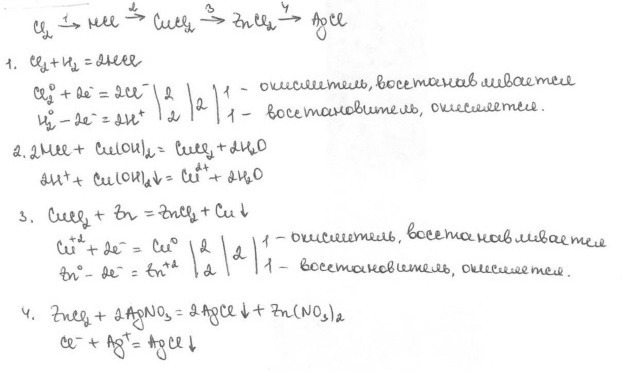 Cl₂ →¹ HCl →² CuCl₂ →³ ZnCl₂ →⁴ AgCl
1. Cl₂ + H₂ = 2HCl
Cl₂⁰ + 2e⁻ = 2Cl⁻ | 2 | 2 | 1 - окислитель, восстанавливается
H₂⁰ - 2e⁻ = 2H⁺ | 2 | | 1 - восстановитель, окисляется.
2. 2HCl + Cu(OH)₂ = CuCl₂ + 2H₂O
2H⁺ + Cu(OH)₂↓ = Cu²⁺ + 2H₂O
3. CuCl₂ + Zn = ZnCl₂ + Cu↓
Cu⁺² + 2e⁻ = Cu⁰ | 2 | 2 | 1 - окислитель, восстанавливается
Zn⁰ - 2e⁻ = Zn⁺² | 2 | | 1 - восстановитель, окисляется.
4. ZnCl₂ + 2AgNO₃ = 2AgCl↓ + Zn(NO₃)₂
Cl⁻ + Ag⁺ = AgCl↓